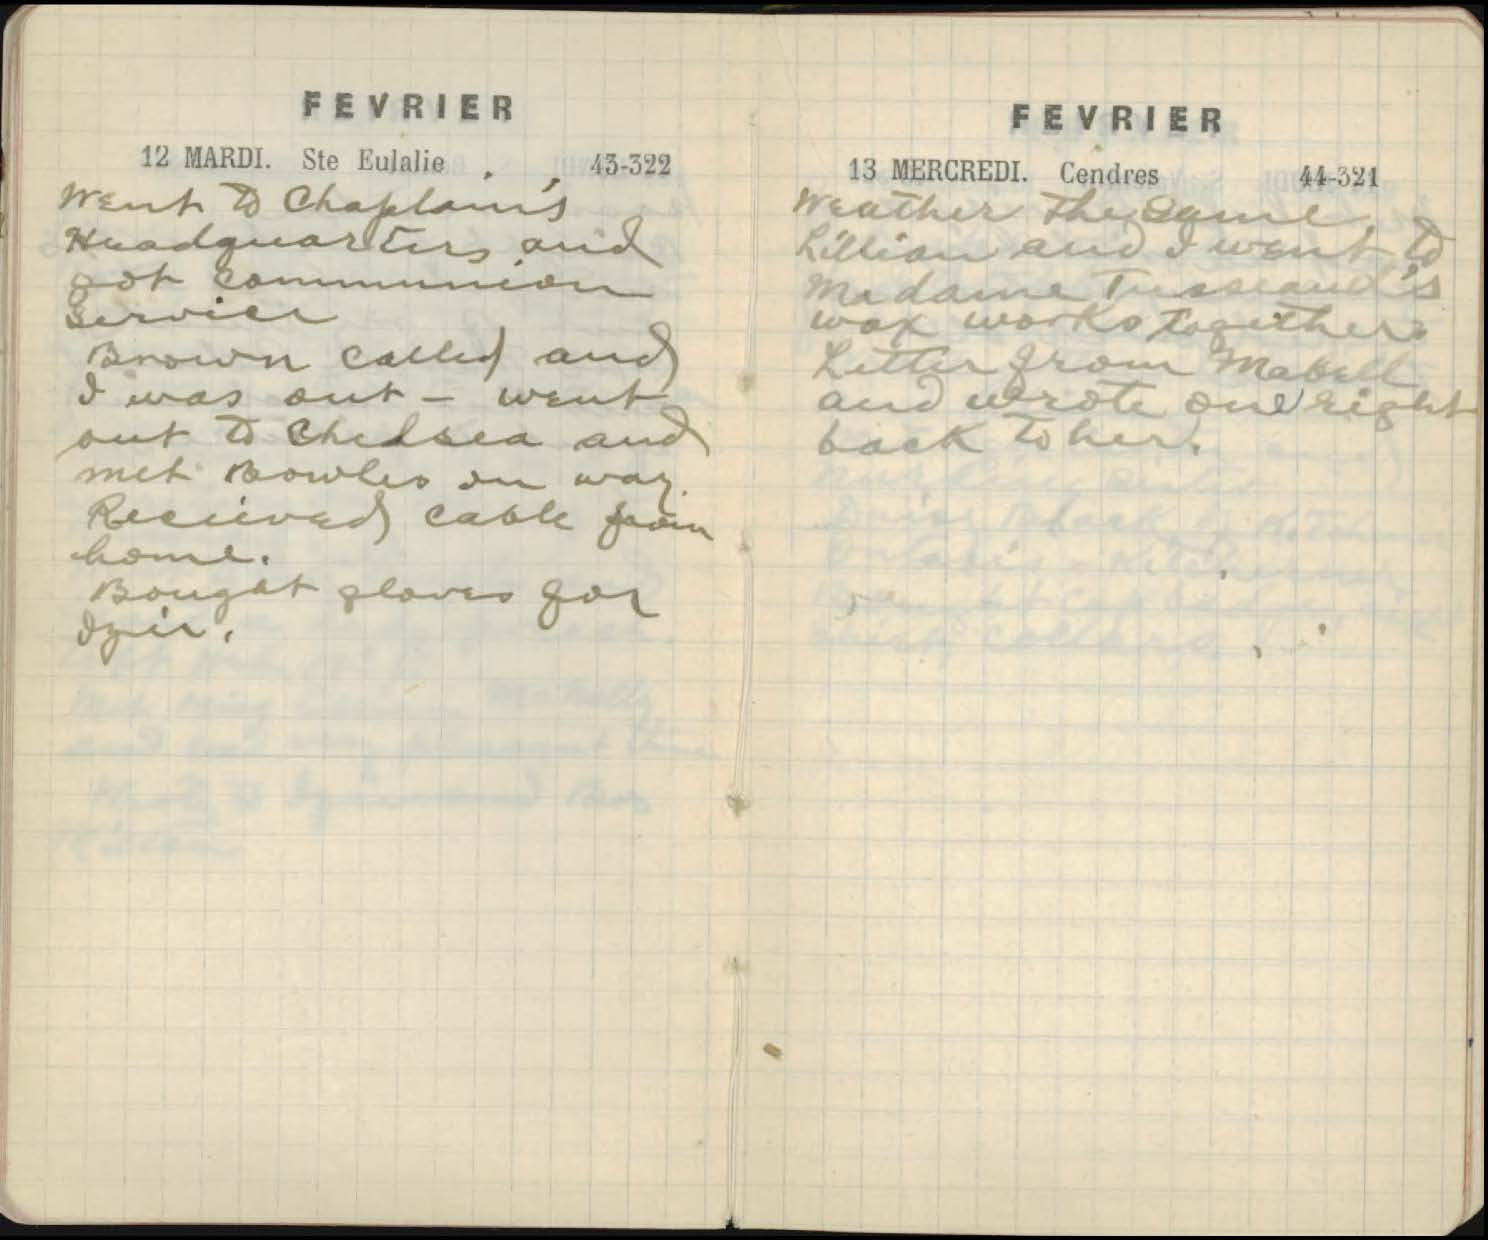 FEVRIER
12 MARDI. Ste Eulalie 43-322
Went to Chaplain's
Headquarters and
got Communion
Service
Brown called and
I was out - went
out to Chelsea and
met Bowles on way.
Recieved cable from
home.
Bought gloves for
FEVRIER
13 MERCREDI. Cendres 44-321
Weather the same.
Lillian and I went to
Madame Tusseaud's
wax works together
Letter from Mabell
and wrote one right
back to her.